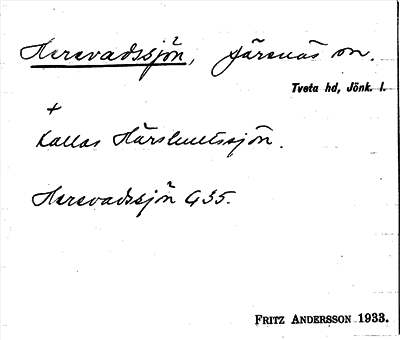 Hersvadssjön, Järsnäs sn.
Tveta hd, Jönk. l.
+
kallas Härshultssjön.
Hersvadsjön G35.
FRITZ ANDERSSON 1933.